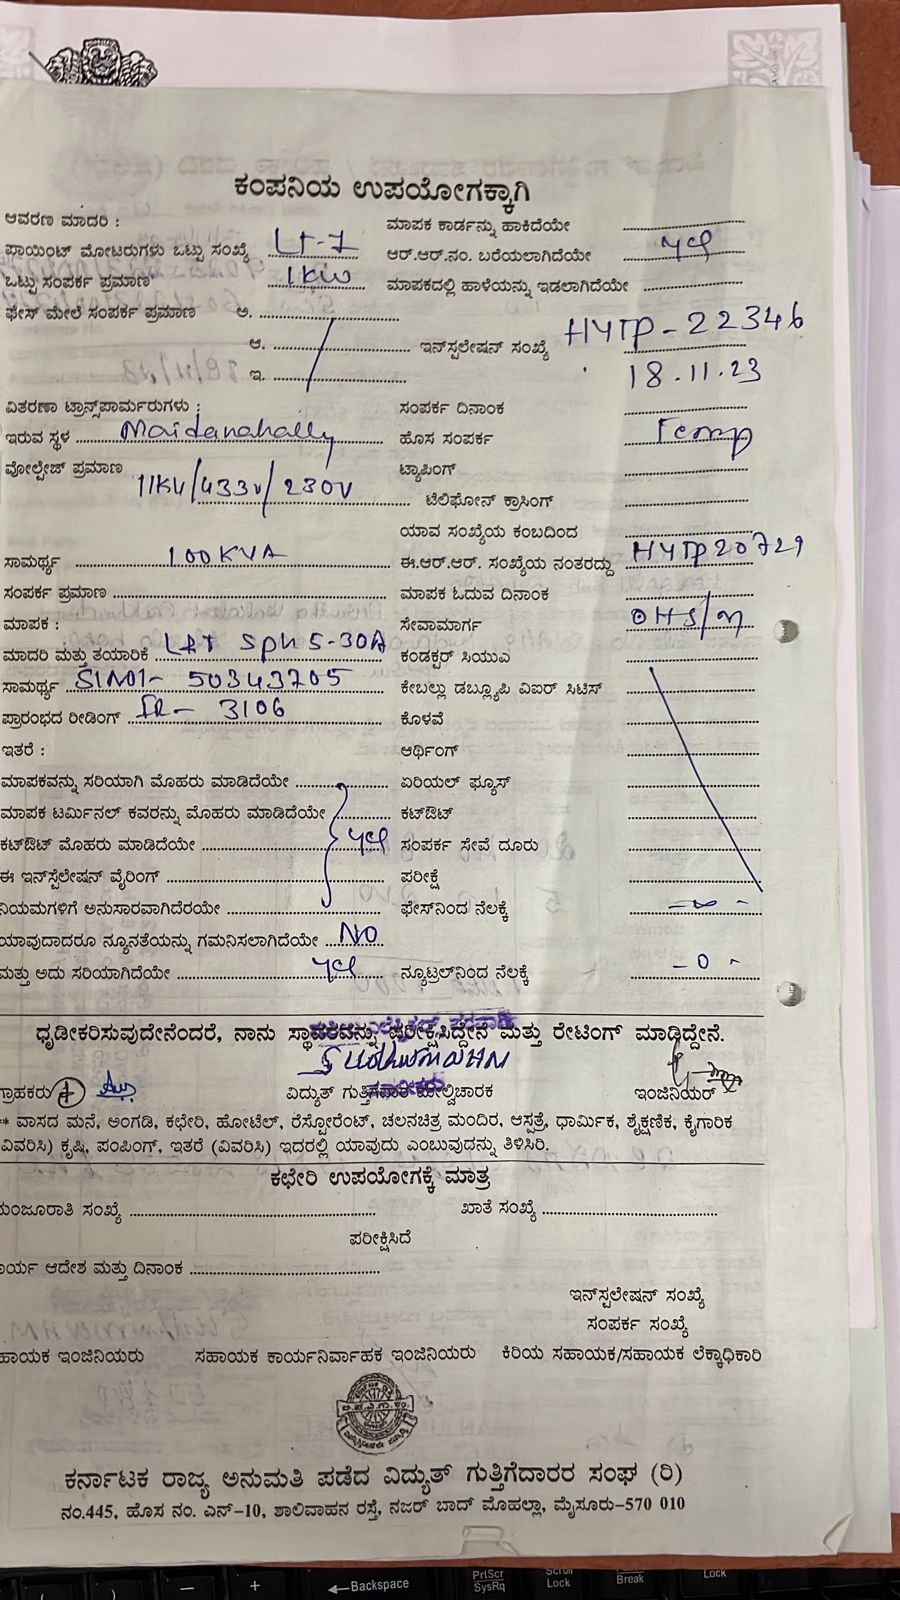 ಕಂಪನಿಯ ಉಪಯೋಗಕ್ಕಾಗಿ
ಆವರಣ ಮಾದರಿ : ಮಾಪಕ ಕಾರ್ಡನ್ನು ಹಾಕಿದೆಯೇ
ಪಾಯಿಂಟ್ ಮೋಟರುಗಳು ಒಟ್ಟು ಸಂಖ್ಯೆ LT-7 ಆರ್.ಆರ್.ನಂ. ಬರೆಯಲಾಗಿದೆಯೇ yes
ಒಟ್ಟು ಸಂಪರ್ಕ ಪ್ರಮಾಣ 1KW ಮಾಪಕದಲ್ಲಿ ಹಾಳೆಯನ್ನು ಇಡಲಾಗಿದೆಯೇ
ಫೇಸ್ ಮೇಲೆ ಸಂಪರ್ಕ ಪ್ರಮಾಣ ಅ.
ಆ. ಇನ್‌ಸ್ಪಲೇಷನ್ ಸಂಖ್ಯೆ HYTP-22346
ಇ. 18.11.23
ವಿತರಣಾ ಟ್ರಾನ್ಸ್‌ಪಾರ್ಮರುಗಳು : ಸಂಪರ್ಕ ದಿನಾಂಕ
ಇರುವ ಸ್ಥಳ Maidanahally ಹೊಸ ಸಂಪರ್ಕ Temp
ವೋಲ್ಟೇಜ್ ಪ್ರಮಾಣ 11KV/433V/230V ಟ್ಯಾಪಿಂಗ್
ಟೆಲಿಫೋನ್ ಕ್ರಾಸಿಂಗ್
ಯಾವ ಸಂಖ್ಯೆಯ ಕಂಬದಿಂದ
ಸಾಮರ್ಥ್ಯ 100KVA ಈ.ಆರ್.ಆರ್. ಸಂಖ್ಯೆಯ ನಂತರದ್ದು HYTP20729
ಸಂಪರ್ಕ ಪ್ರಮಾಣ ಮಾಪಕ ಓದುವ ದಿನಾಂಕ
ಮಾಪಕ : ಸೇವಾಮಾರ್ಗ OHS/m
ಮಾದರಿ ಮತ್ತು ತಯಾರಿಕೆ L&T SPH 5-30A ಕಂಡಕ್ಟರ್ ಸಿಯುವಿ
ಸಾಮರ್ಥ್ಯ Sl No1- 50343705 ಕೇಬಲ್ಲು ಡಬ್ಲ್ಯೂಪಿ ವಿಐರ್ ಸಿಟಿಸ್
ಪ್ರಾರಂಭದ ರೀಡಿಂಗ್ IR- 3106 ಕೊಳವೆ
ಇತರೆ : ಆರ್ಥಿಂಗ್
ಮಾಪಕವನ್ನು ಸರಿಯಾಗಿ ಮೊಹರು ಮಾಡಿದೆಯೇ ಏರಿಯಲ್ ಫ್ಯೂಸ್
ಮಾಪಕ ಟರ್ಮಿನಲ್ ಕವರನ್ನು ಮೊಹರು ಮಾಡಿದೆಯೇ ಕಟ್‌ಔಟ್
ಕಟ್‌ಔಟ್ ಮೊಹರು ಮಾಡಿದೆಯೇ yes ಸಂಪರ್ಕ ಸೇವೆ ದೂರು
ಈ ಇನ್‌ಸ್ಪೆಲೇಷನ್ ವೈರಿಂಗ್ ಪರೀಕ್ಷೆ
ನಿಯಮಗಳಿಗೆ ಅನುಸಾರವಾಗಿದೆರಯೇ ಫೇಸ್‌ನಿಂದ ನೆಲಕ್ಕೆ -∞-
ಯಾವುದಾದರೂ ನ್ಯೂನತೆಯನ್ನು ಗಮನಿಸಲಾಗಿದೆಯೇ NO
ಮತ್ತು ಅದು ಸರಿಯಾಗಿದೆಯೇ yes ನ್ಯೂಟ್ರಲ್‌ನಿಂದ ನೆಲಕ್ಕೆ -0-
ಧೃಡೀಕರಿಸುವುದೇನೆಂದರೆ, ನಾನು ಸ್ಥಾವರವನ್ನು ಪರೀಕ್ಷಿಸಿದ್ದೇನೆ ಮತ್ತು ರೇಟಿಂಗ್ ಮಾಡಿದ್ದೇನೆ.
ಗ್ರಾಹಕರು ವಿದ್ಯುತ್ ಗುತ್ತಿಗೆದಾರ ಮೇಲ್ವಿಚಾರಕ ಇಂಜಿನಿಯರ್
** ವಾಸದ ಮನೆ, ಅಂಗಡಿ, ಕಛೇರಿ, ಹೋಟೆಲ್, ರೆಸ್ಟೋರೆಂಟ್, ಚಲನಚಿತ್ರ ಮಂದಿರ, ಆಸ್ಪತ್ರೆ, ಧಾರ್ಮಿಕ, ಶೈಕ್ಷಣಿಕ, ಕೈಗಾರಿಕ
(ವಿವರಿಸಿ) ಕೃಷಿ, ಪಂಪಿಂಗ್, ಇತರೆ (ವಿವರಿಸಿ) ಇದರಲ್ಲಿ ಯಾವುದು ಎಂಬುವುದನ್ನು ತಿಳಿಸಿರಿ.
ಕಛೇರಿ ಉಪಯೋಗಕ್ಕೆ ಮಾತ್ರ
ಮಂಜೂರಾತಿ ಸಂಖ್ಯೆ ಖಾತೆ ಸಂಖ್ಯೆ
ಪರೀಕ್ಷಿಸಿದೆ
ಕಾರ್ಯ ಆದೇಶ ಮತ್ತು ದಿನಾಂಕ
ಇನ್‌ಸ್ಪಲೇಷನ್ ಸಂಖ್ಯೆ
ಸಂಪರ್ಕ ಸಂಖ್ಯೆ
ಸಹಾಯಕ ಇಂಜಿನಿಯರು ಸಹಾಯಕ ಕಾರ್ಯನಿರ್ವಾಹಕ ಇಂಜಿನಿಯರು ಕಿರಿಯ ಸಹಾಯಕ/ಸಹಾಯಕ ಲೆಕ್ಕಾಧಿಕಾರಿ
ಕರ್ನಾಟಕ ರಾಜ್ಯ ಅನುಮತಿ ಪಡೆದ ವಿದ್ಯುತ್ ಗುತ್ತಿಗೆದಾರರ ಸಂಘ (ರಿ)
ನಂ.445, ಹೊಸ ನಂ. ಎನ್-10, ಶಾಲಿವಾಹನ ರಸ್ತೆ, ನಜರ್ ಬಾದ್ ಮೊಹಲ್ಲಾ, ಮೈಸೂರು-570 010
- + ←Backspace PrtScr SysRq Scroll Lock Break Lock